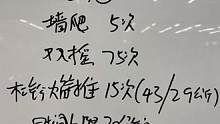 墙爬 5次
双摇 75次
杠铃火箭推 15次(43/29公斤)